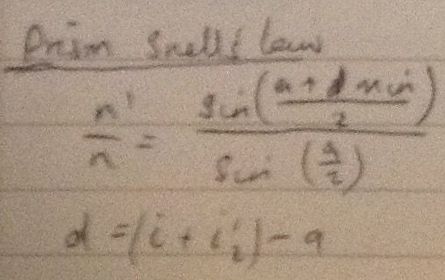 Prism Snell's law
n'/n = sin((a + d min)/2) / sin (a/2)
d = (i + i'₂) - a